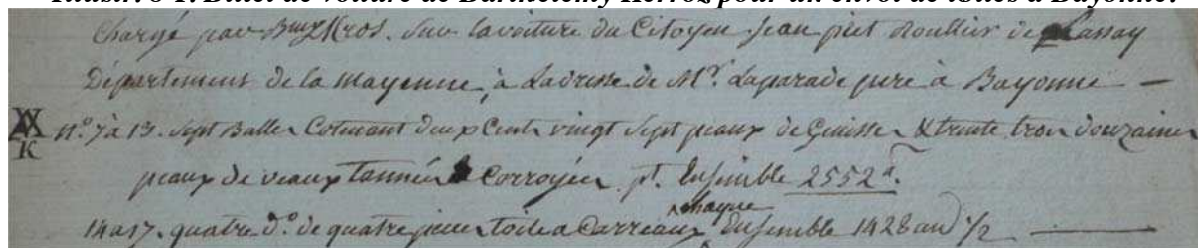 Illustr. 8-1. Billet de voiture de Barthélemy Kerros pour un envoi de toiles à Bayonne.
Chargé par Bmy Kros. Sur la voiture du Citoyen Jean piet Roullier de Lassay
Département de la mayenne, à Ladresse de Mr. Laparade pere à Bayonne —
XX K n.o 7 à 13. Sept Balles Contenant deux Cents vingt Sept peaux de Genisses & trente trois douzaines
peaux de veaux tannées & Corroyées pt. Ensemble 2552 tt.
14 a 17. quatre d.o de quatre pieces toile a Carreaux chaque Ensemble 1428 au 1/2 —